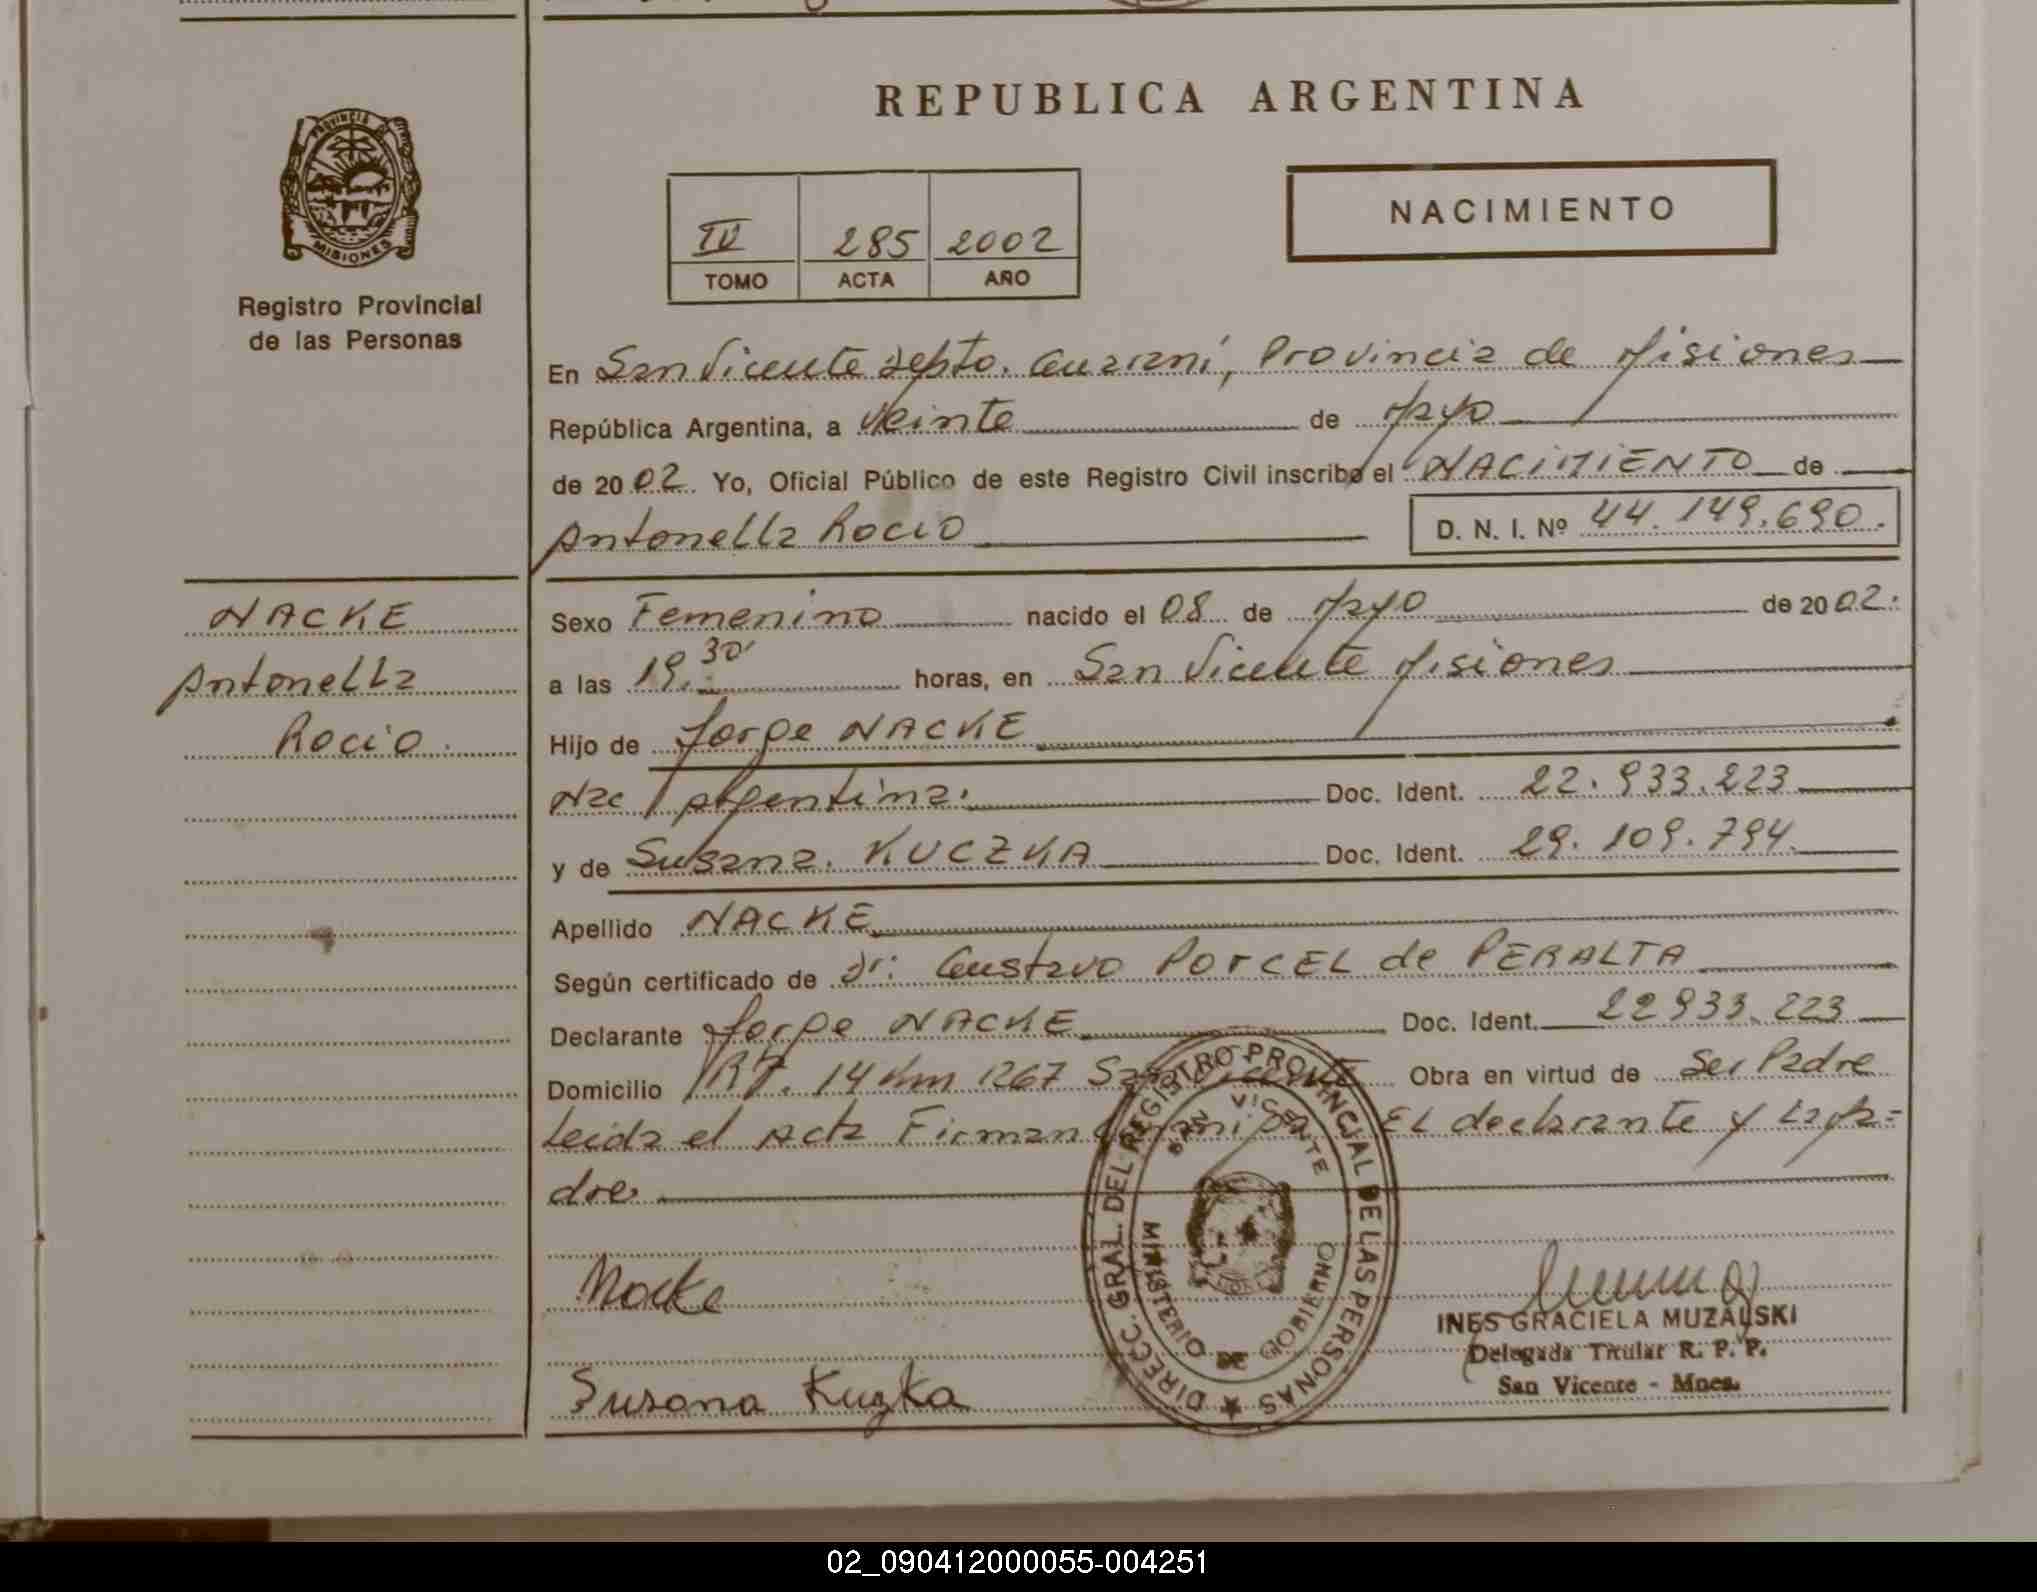 REPUBLICA ARGENTINA
PROVINCIA DE
MISIONES
Registro Provincial
de las Personas
IV 285 2002
TOMO ACTA AÑO
NACIMIENTO
En San Vicente Depto. Guaraní, Provincia de Misiones
República Argentina, a veinte de Mayo
de 2002. Yo, Oficial Público de este Registro Civil inscribo el NACIMIENTO de
Antonella Rocio D. N. I. Nº 44.149.690.
NACKE
Antonella
Rocio.
Sexo Femenino nacido el 08 de Mayo de 2002.
a las 19.30' horas, en San Vicente Misiones
Hijo de Jorge NACKE
Nac Argentina. Doc. Ident. 22.933.223
y de Susana. KUCZKA Doc. Ident. 29.109.794.
Apellido NACKE
Según certificado de Dr: Gustavo PORCEL de PERALTA
Declarante Jorge NACKE Doc. Ident. 22933.223
Domicilio R7. 14 Km 1267 San Vicente Obra en virtud de Ser Padre
Leida el Acta Firman Conmigo EL declarante y La Ma=
dre.
Nacke
Susana Kuzka
DIRECC. GRAL. DEL REGISTRO PROVINCIAL DE LAS PERSONAS
SAN VICENTE
MINISTERIO DE GOBIERNO
INES GRACIELA MUZALSKI
Delegada Titular R. P. P.
San Vicente - Mnes.
02_090412000055-004251